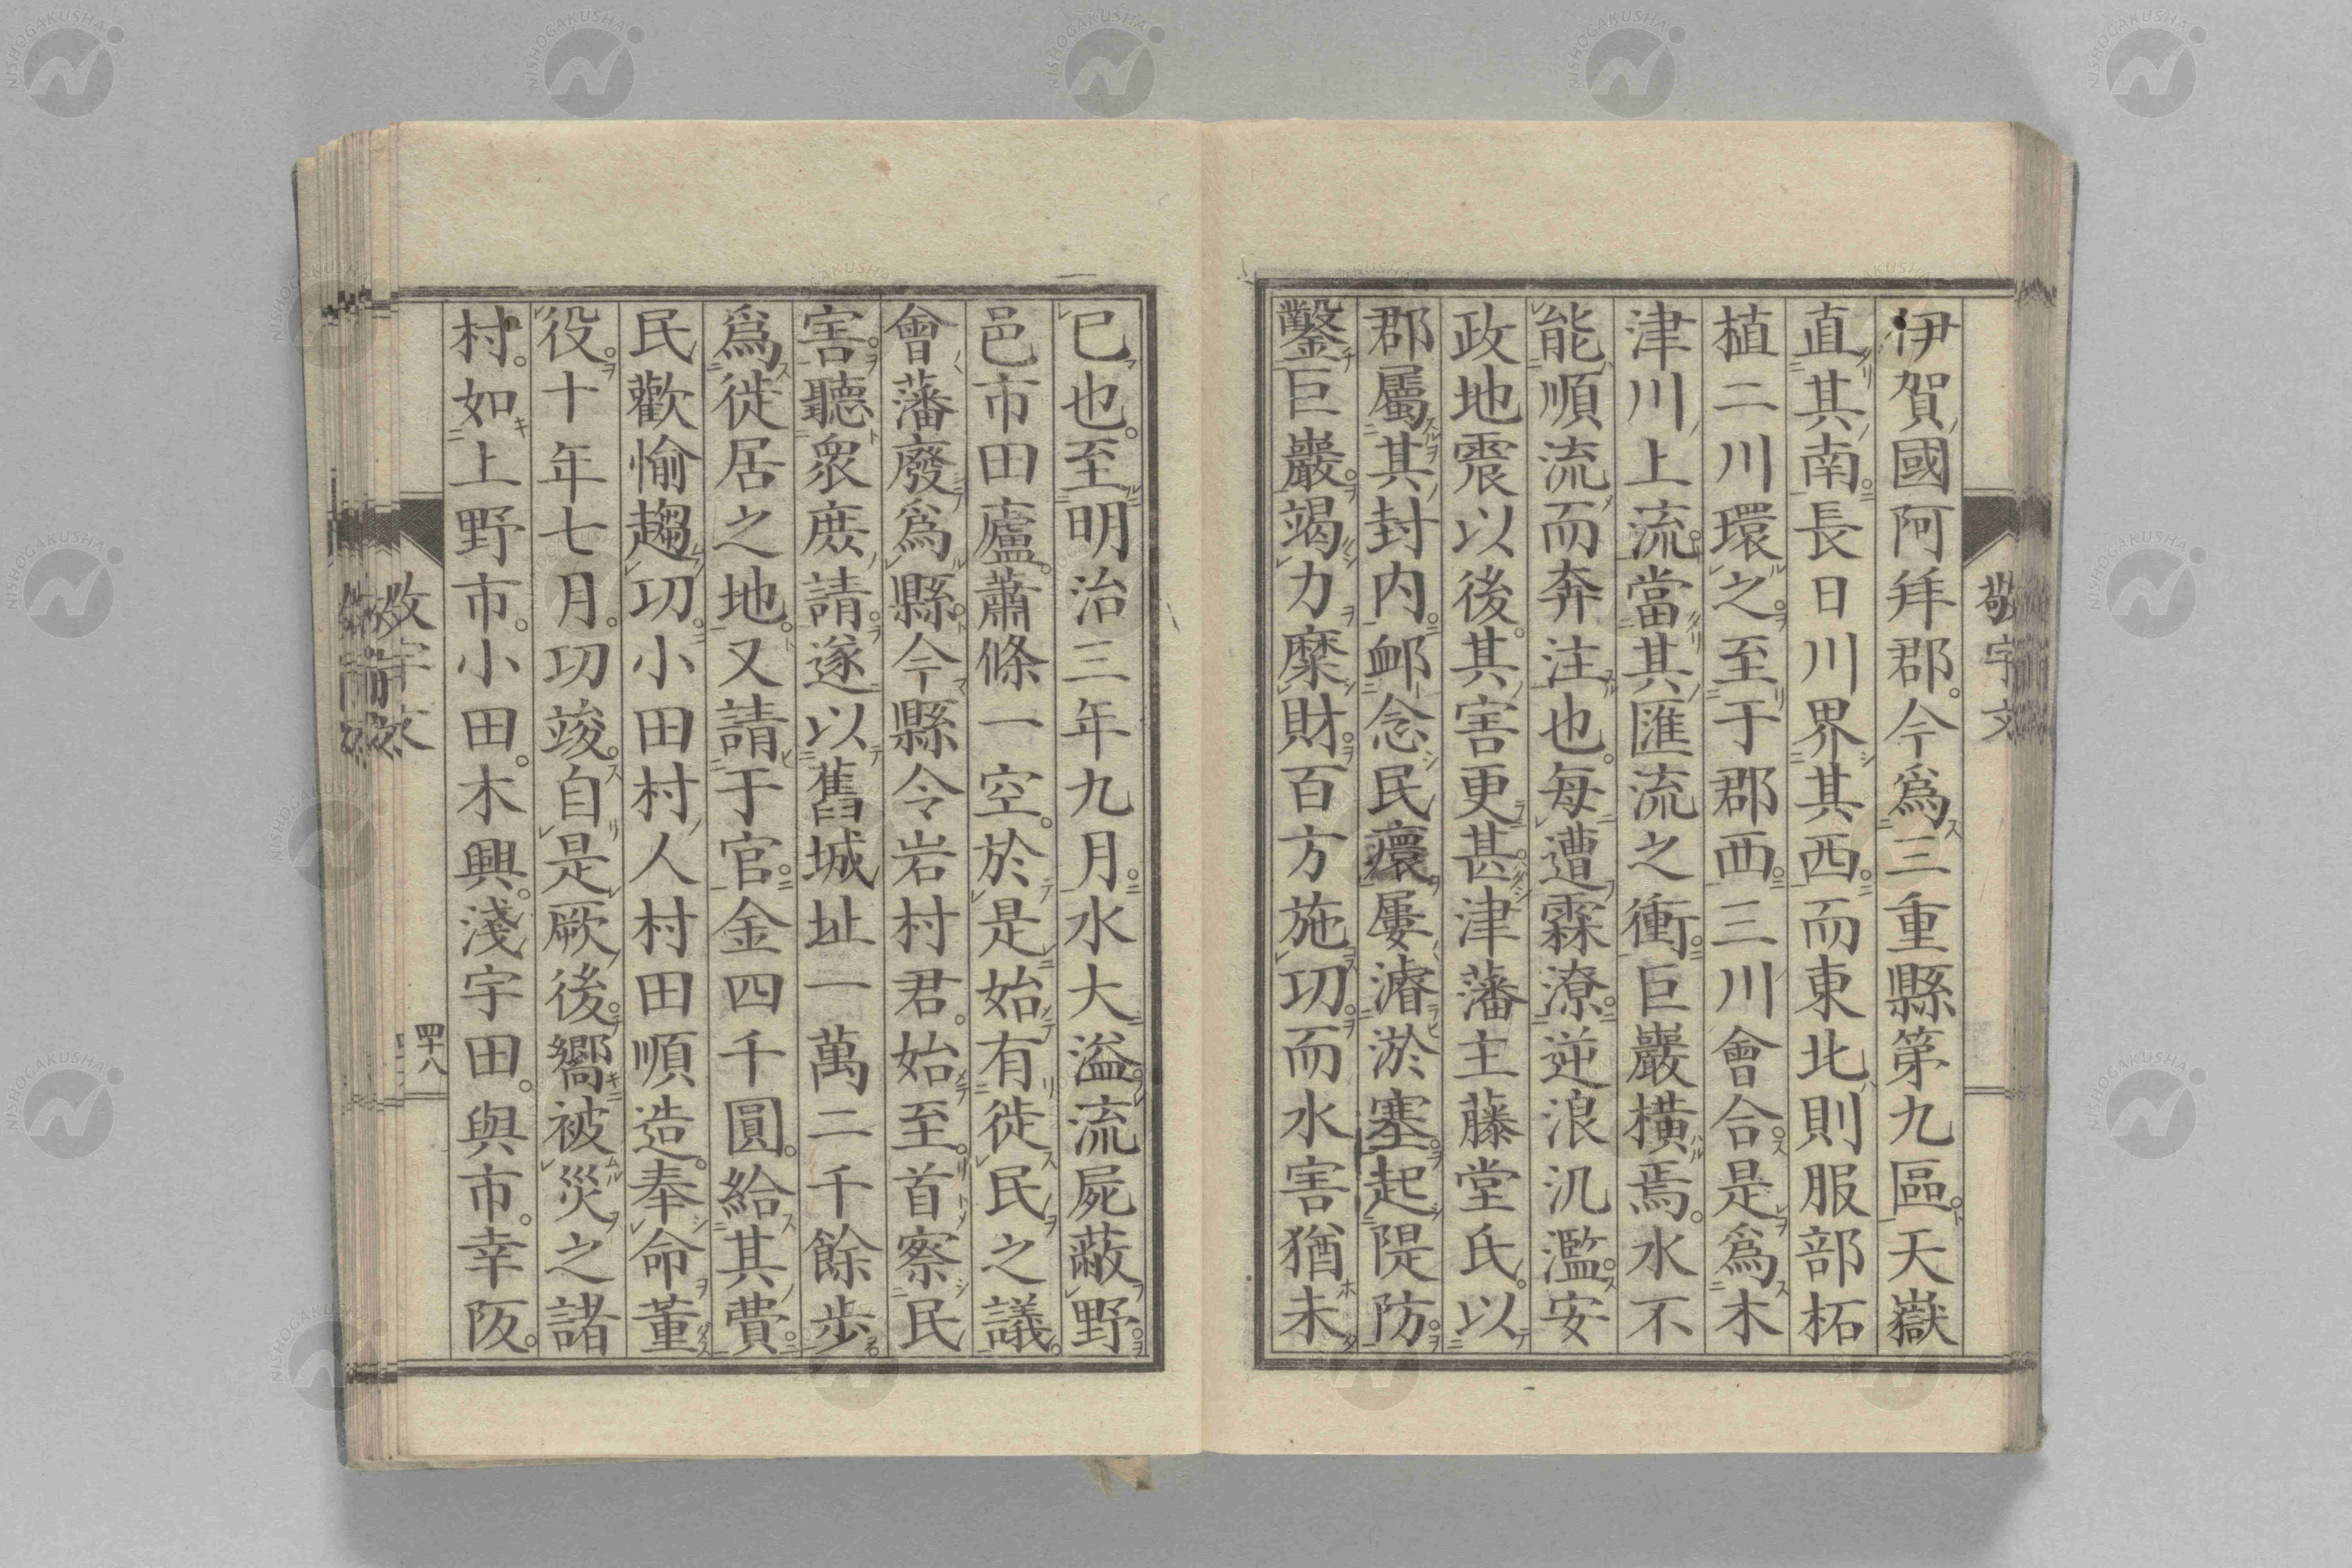 敬宇文
伊賀國阿拜郡。今爲三重縣第九區。天嶽
直其南。長日川界其西。而東北則服部柘
植二川環之。至于郡西。三川會合。是爲木
津川上流。當其匯流之衝。巨巖橫焉。水不
能順流而奔注也。每遭霖潦。逆浪汎濫。安
政地震以後。其害更甚。津藩主藤堂氏。以
郡屬其封内。卹念民瘼。屢濬淤塞。起隄防。
鑿巨巖。竭力糜財。百方施功。而水害猶未
已也。至明治三年九月。水大溢。流屍蔽野。
邑市田廬。蕭條一空。於是始有徙民之議。
會藩廢爲縣。今縣令岩村君。始至。首察民
害。聽衆庶請。遂以舊城址一萬二千餘步
爲徙居之地。又請于官。金四千圓。給其費。
民歡愉趨功。小田村人村田順造。奉命董
役。十年七月。功竣。自是厥後。嚮被災之諸
村。如上野市。小田。木興。淺宇田。與市。幸阪。
敬宇文
四十八
NISHOGAKUSHA